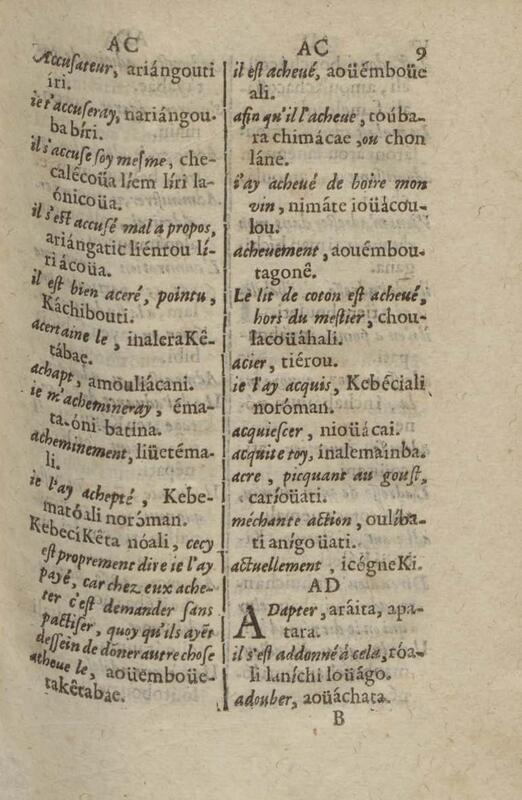 AC
Accusateur, ariángouti
íri.
ie t'accuseray, nariángou-
ba bíri.
il s'accuse soy mesme, che-
calêcoüa líem líri la-
ónicoüa.
il s'est accusé mal a propos,
ariángatic liénrou lí-
ri ácoüa.
il est bien aceré, pointu,
Káchibouti.
acertaine le, inaleraKê-
tábae.
achapt, amouliácani.
ie m'achemineray, éma-
ta-óni batina.
acheminement, liüetéma-
li.
ie l'ay achepté, Kebe-
matóali noróman.
KebeciKêta nóali, cecy
est proprement dire ie l'ay
payé, car chez eux ache-
ter c'est demander sans
pactiser, quoy qu'ils ayẽt
dessein de dõner autre chose
acheue le, aoüemboüe-
takêtabae.
AC 9
il est acheué, aoüémboüe
ali.
afin qu'il l'acheue, toúba-
ra chimácae, ou chon
láne.
i'ay acheué de boire mon
vin, nimáte ioüácou-
lou.
acheuement, aouémbou-
tagonê.
Le lit de coton est acheué,
hors du mestier, chou-
lacoüáhali.
acier, tiérou.
ie l'ay acquis, Kebéciali
noróman.
acquiescer, nioüácai.
acquite toy, inalemainba.
acre, picquant au goust,
caríoüati.
méchante action, oulíba-
ti anígoüati.
actuellement, icégneKi.
AD
ADapter, aráita, apa-
tara.
il s'est addonné á cela, tóa-
li laníchi loüágo.
adouber, aoüáchata.
B